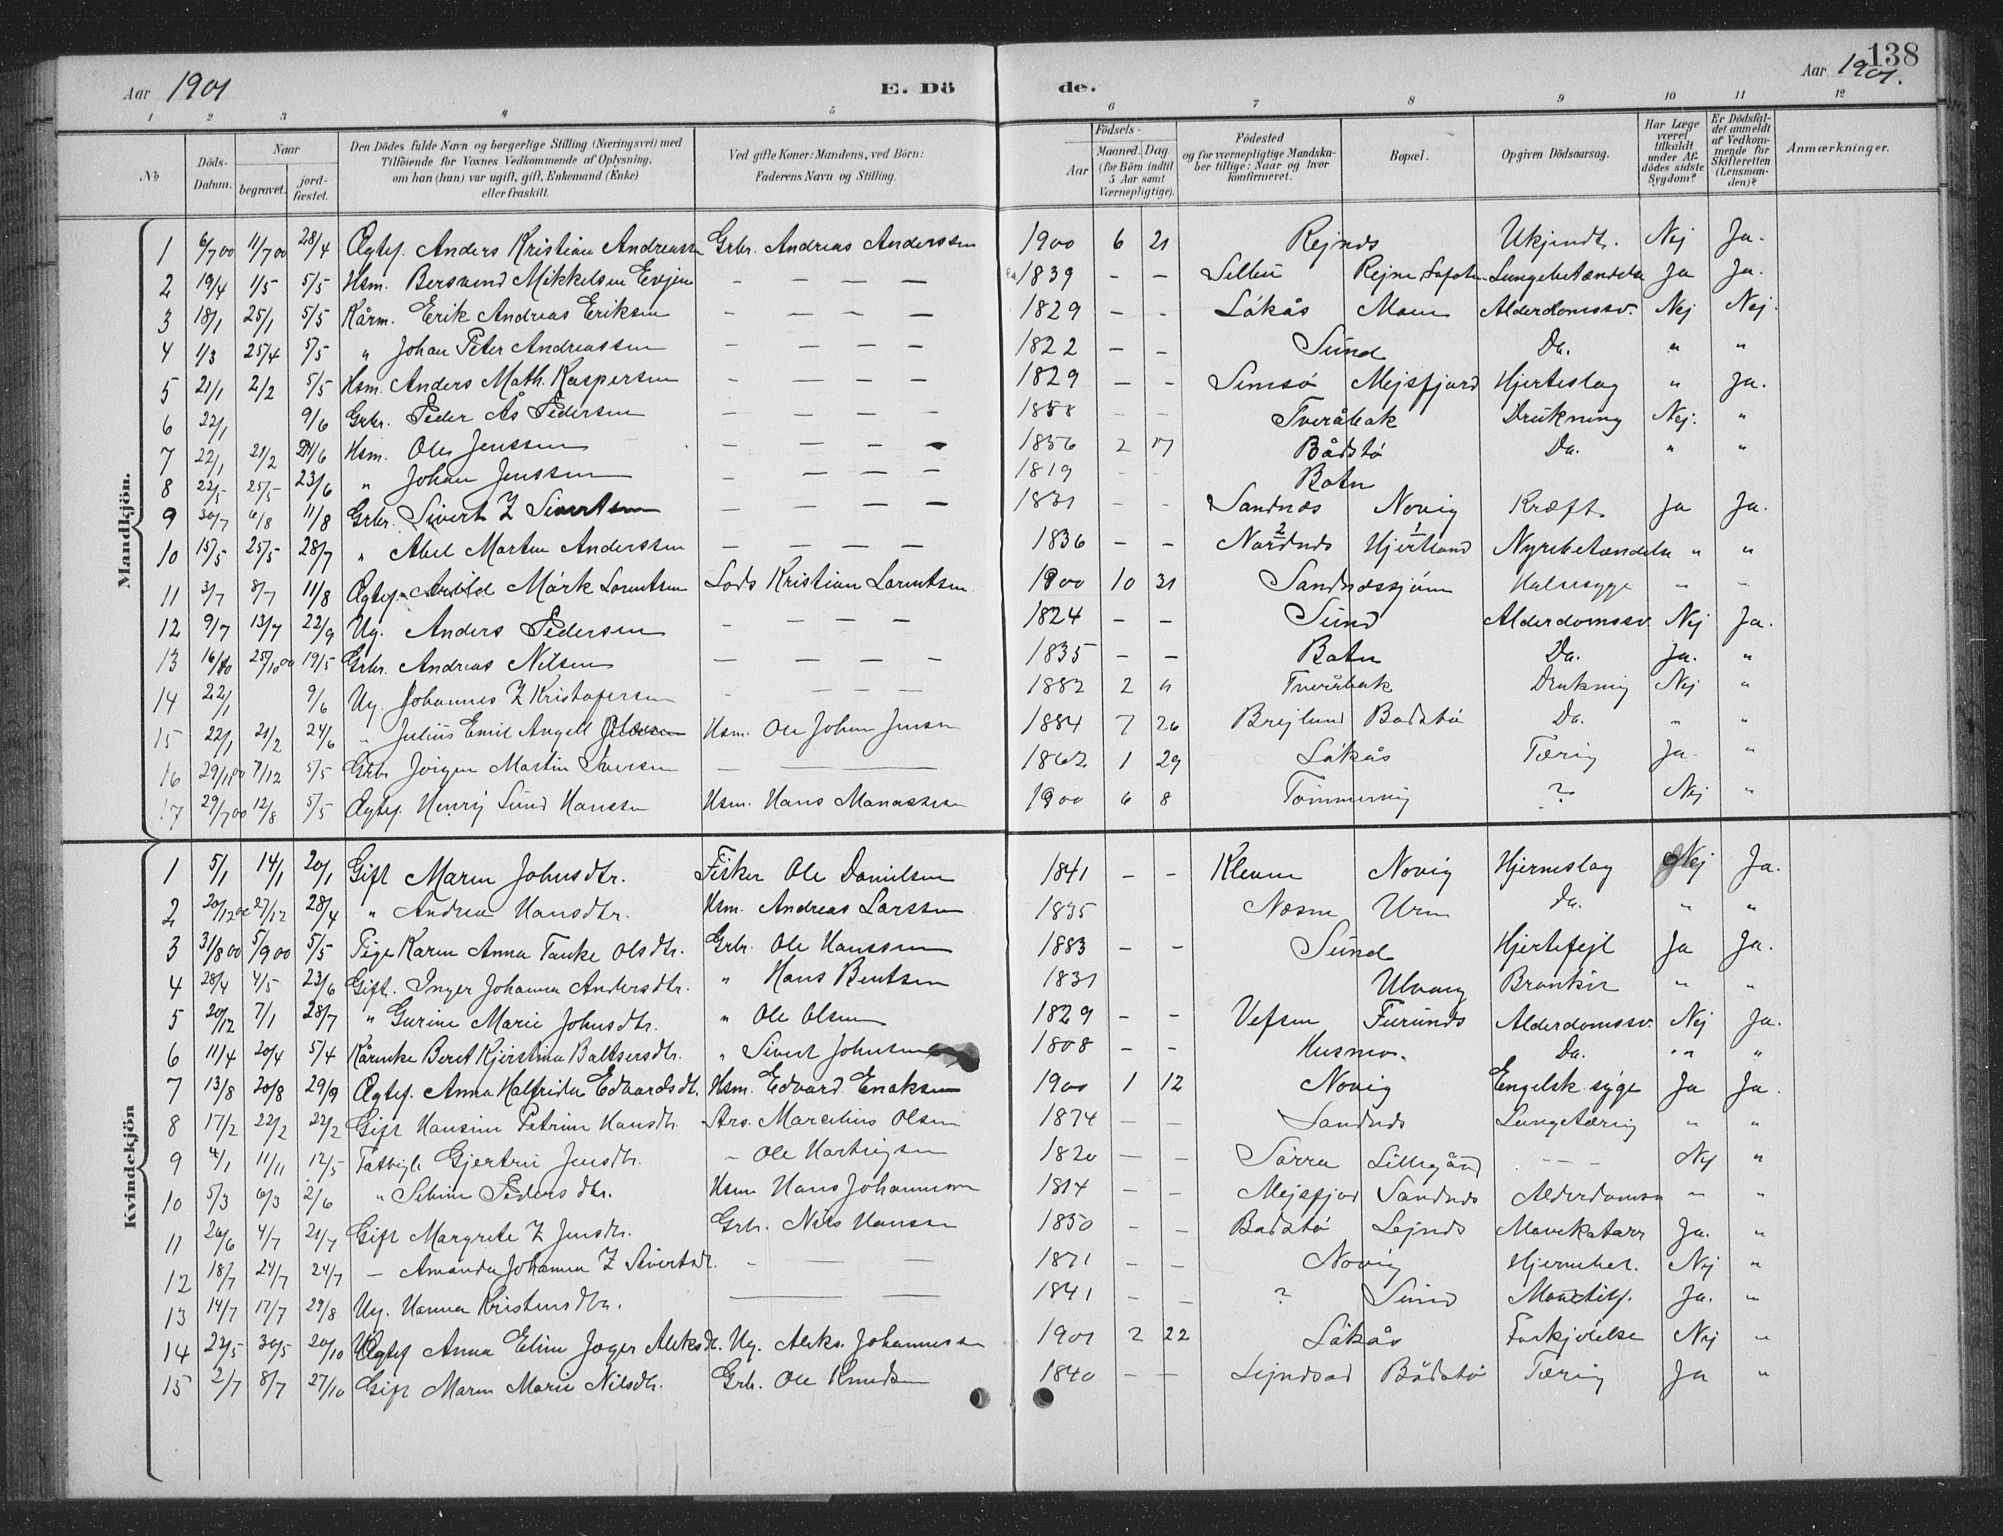 138
Aar 1901 E. Dö de. Aar 1901.
1 2 3 4 5 6 7 8 9 10 11 12
No Döds-Datum. Naar begravet. jord-fæstet. Den Dödes fulde Navn og borgerlige Stilling (Næringsvei) med Tilföiende for Voxnes Vedkommende af Oplysning, om han (hun) var ugift, gift, Enkemand (Enke) eller fraskilt. Ved gifte Koner: Mandens, ved Börn: Faderens Navn og Stilling. Födsels- Aar Maaned. Dag. (for Börn indtil 5 Aar samt Værnepligtige). Födested og for værnepligtige Mandska-ber tillige: Naar og hvor konfirmeret. Bopæl. Opgiven Dödsaarsag. Har Læge været tilkaldt under Af-dödes sidste Sygdom? Er Dödsfal-det anmeldt af Vedkom-mende for Skifteretten (Lensman-den)? Anmærkninger.
Mandkjön.
1 6/7 00 11/7 00 28/4 Ægtef. Anders Kristian Andreassen Grbr. Andreas Anderssen 1900 6 21 Rejnds Ukjendt. Nej Ja.
2 19/4 1/5 5/5 Hsm. Bersvend Mikkelsen Evjen – – – – 1839 – – Rejne Lofoten Lungebetændelse Ja Ja.
3 18/1 25/1 5/5 Kårm. Erik Andreas Eriksen – – – – 1829 – – Låkås Moen Alderdomssv. Nej Nej.
4 1/3 25/4 5/5 " Johan Peter Andreassen – – – – 1822 – – Sund Do. " "
5 21/1 2/2 5/5 Hsm. Anders Math. Kaspersen – – – – 1829 – – Mejsfjord Hjerteslag " Ja.
6 22/1 9/6 Grbr. Peder Ås Pedersen – – – – 1858 – – Tveråbak Drukning Nej. "
7 22/1 21/2 24/6 Hsm. Ole Jenssen – – – – 1856 2 17 Bådstø Do. " "
8 22/5 25/5 23/6 " Johan Jenssen – – – – 1819 – – Botn
9 30/7 6/8 11/8 Grbr. Sivert Z Sivertsen – – – – 1831 – – Sandnæs Novig Kræft Ja Ja.
10 15/5 25/5 28/7 " Abel Martin Anderssen – – – – 1836 – – Nordnds 2 Hjertland 1 Nyrebetændelse " "
11 3/7 8/7 11/8 Ægtef. Mørk Lorentsen Lods Kristian Lorentsen 1900 10 31 Sandnæssjøen Halssyge " "
12 9/7 13/7 22/9 Ug. Anders Pedersen – – – – 1824 – – Sund Alderdomssv. Nej Ja.
13 16/10 25/10 00 19/5 Grbr. Andreas Nilsen – – – – 1835 – – Botn Do. Ja. "
14 22/1 9/6 Ug. Johannes Z Kristofersen – – – – 1882 2 11 Tveråbak Drukning Nej "
15 22/1 21/2 24/6 " Julius Emil Angell Olsen Hsm. Ole Johan Jensen 1884 7 26 Brejlund Bådstø Do. " "
16 29/11 00 7/12 5/5 Grbr Jørgen Martin Iversen – – 1862 1 29 Låkås Tæring Ja. "
17 29/7 00 12/8 5/5 Ægtef. Henrij Sund Hanssen Hsm. Hans Manassen 1900 6 8 Tømmervig ? Nej "
Kvindekjön
1 5/1 14/1 20/1 Gift Maren Johnsdtr. Fisker Ole Danielsen 1841 – – Kleven Novig Hjerneslag Nej Ja.
2 20/12 00 27/12 28/4 " Andrea Hansdtr. Hsm. Andreas Larssen 1835 – – Næsne Uren Do. " "
3 31/8 00 5/9 00 5/5 Pige Karen Anna Tanke Olsdtr. Grbr. Ole Hanssen 1883 – – Sund Hjertefejl Ja Ja.
4 28/4 4/5 23/6 Gift. Inger Johanna Andersdtr. " Hans Bentsen 1831 Ulvang Bronkit " "
5 20/12 7/1 28/7 " Gurine Marie Johnsdtr. " Ole Olsen 1829 – – Vefsen Furunds Alderdomssv. Nej Ja.
6 11/4 20/4 5/4 Kårenke Beret Kjerstina Baltsersdtr. " Sivert Johnsen 1808 – – Husmo. Do. " "
7 13/8 20/8 29/9 Ægtef. Anna Halfrida Edvardsdtr. Hsm. Edvard Enoksen 1900 1 12 Novig Engelsk syge Ja Ja.
8 17/2 22/2 22/2 Gift Hansine Petrine Hansdtr. Strs. Marcelius Olsen 1874 – – Sandnds Lungetæring " "
9 4/1 11/1 12/5 Fattigle Gjertrú Jensdtr. – Ole Hartvigsen 1820 – – Sørra Lillegånd – – Nej "
10 5/3 6/3 2/6 " Seline Pedersdtr. Hsm Hans Johannesen 1814 – – Mejsfjord Sandnds Alderdomssv " "
11 26/6 4/7 21/7 Gift Margrete Z Jensdtr. Grbr. Nils Hanssen 1850 – – Bådstø Lejnds Mavekatarr Ja. "
12 18/7 24/7 24/7 – Amanda Johanna Z Sivertsdtr. – – – 1871 – – Novig Hjernebet. Nej "
13 14/7 17/7 29/8 Ug. Hanna Kristensdtr. – – 1841 – – ? Sund Ja. "
14 22/5 30/5 20/10 Ægtef Anna Eline Jager Aleksdtr. Ug. Aleks. Johannessen 1901 2 22 Låkås Forkjølelse Nej "
15 2/7 8/7 27/10 Gift Maren Marie Nilsdtr. Grbr. Ole Knudsen 1840 – – Bådstø Tæring Ja "